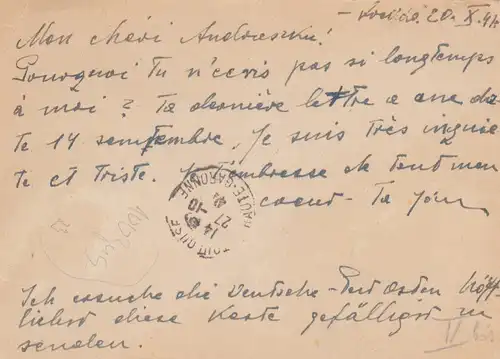 20. X. 41.
Mon chéri Andreszku!
Pourquoi Tu n'ecris pas si longtemps
à moi? Ta dernière lettre a une da-
te 14 semtembre. Je suis très inquie-
te et triste. Je t'embresse de tout mon
coeur - Ta
TOULOUSE
14 45
27 -10
HAUTE-GARONNE
Ich ersuche die Deutsche-Post Osten höff-
lichst diese Karte gefälligst zu
senden.